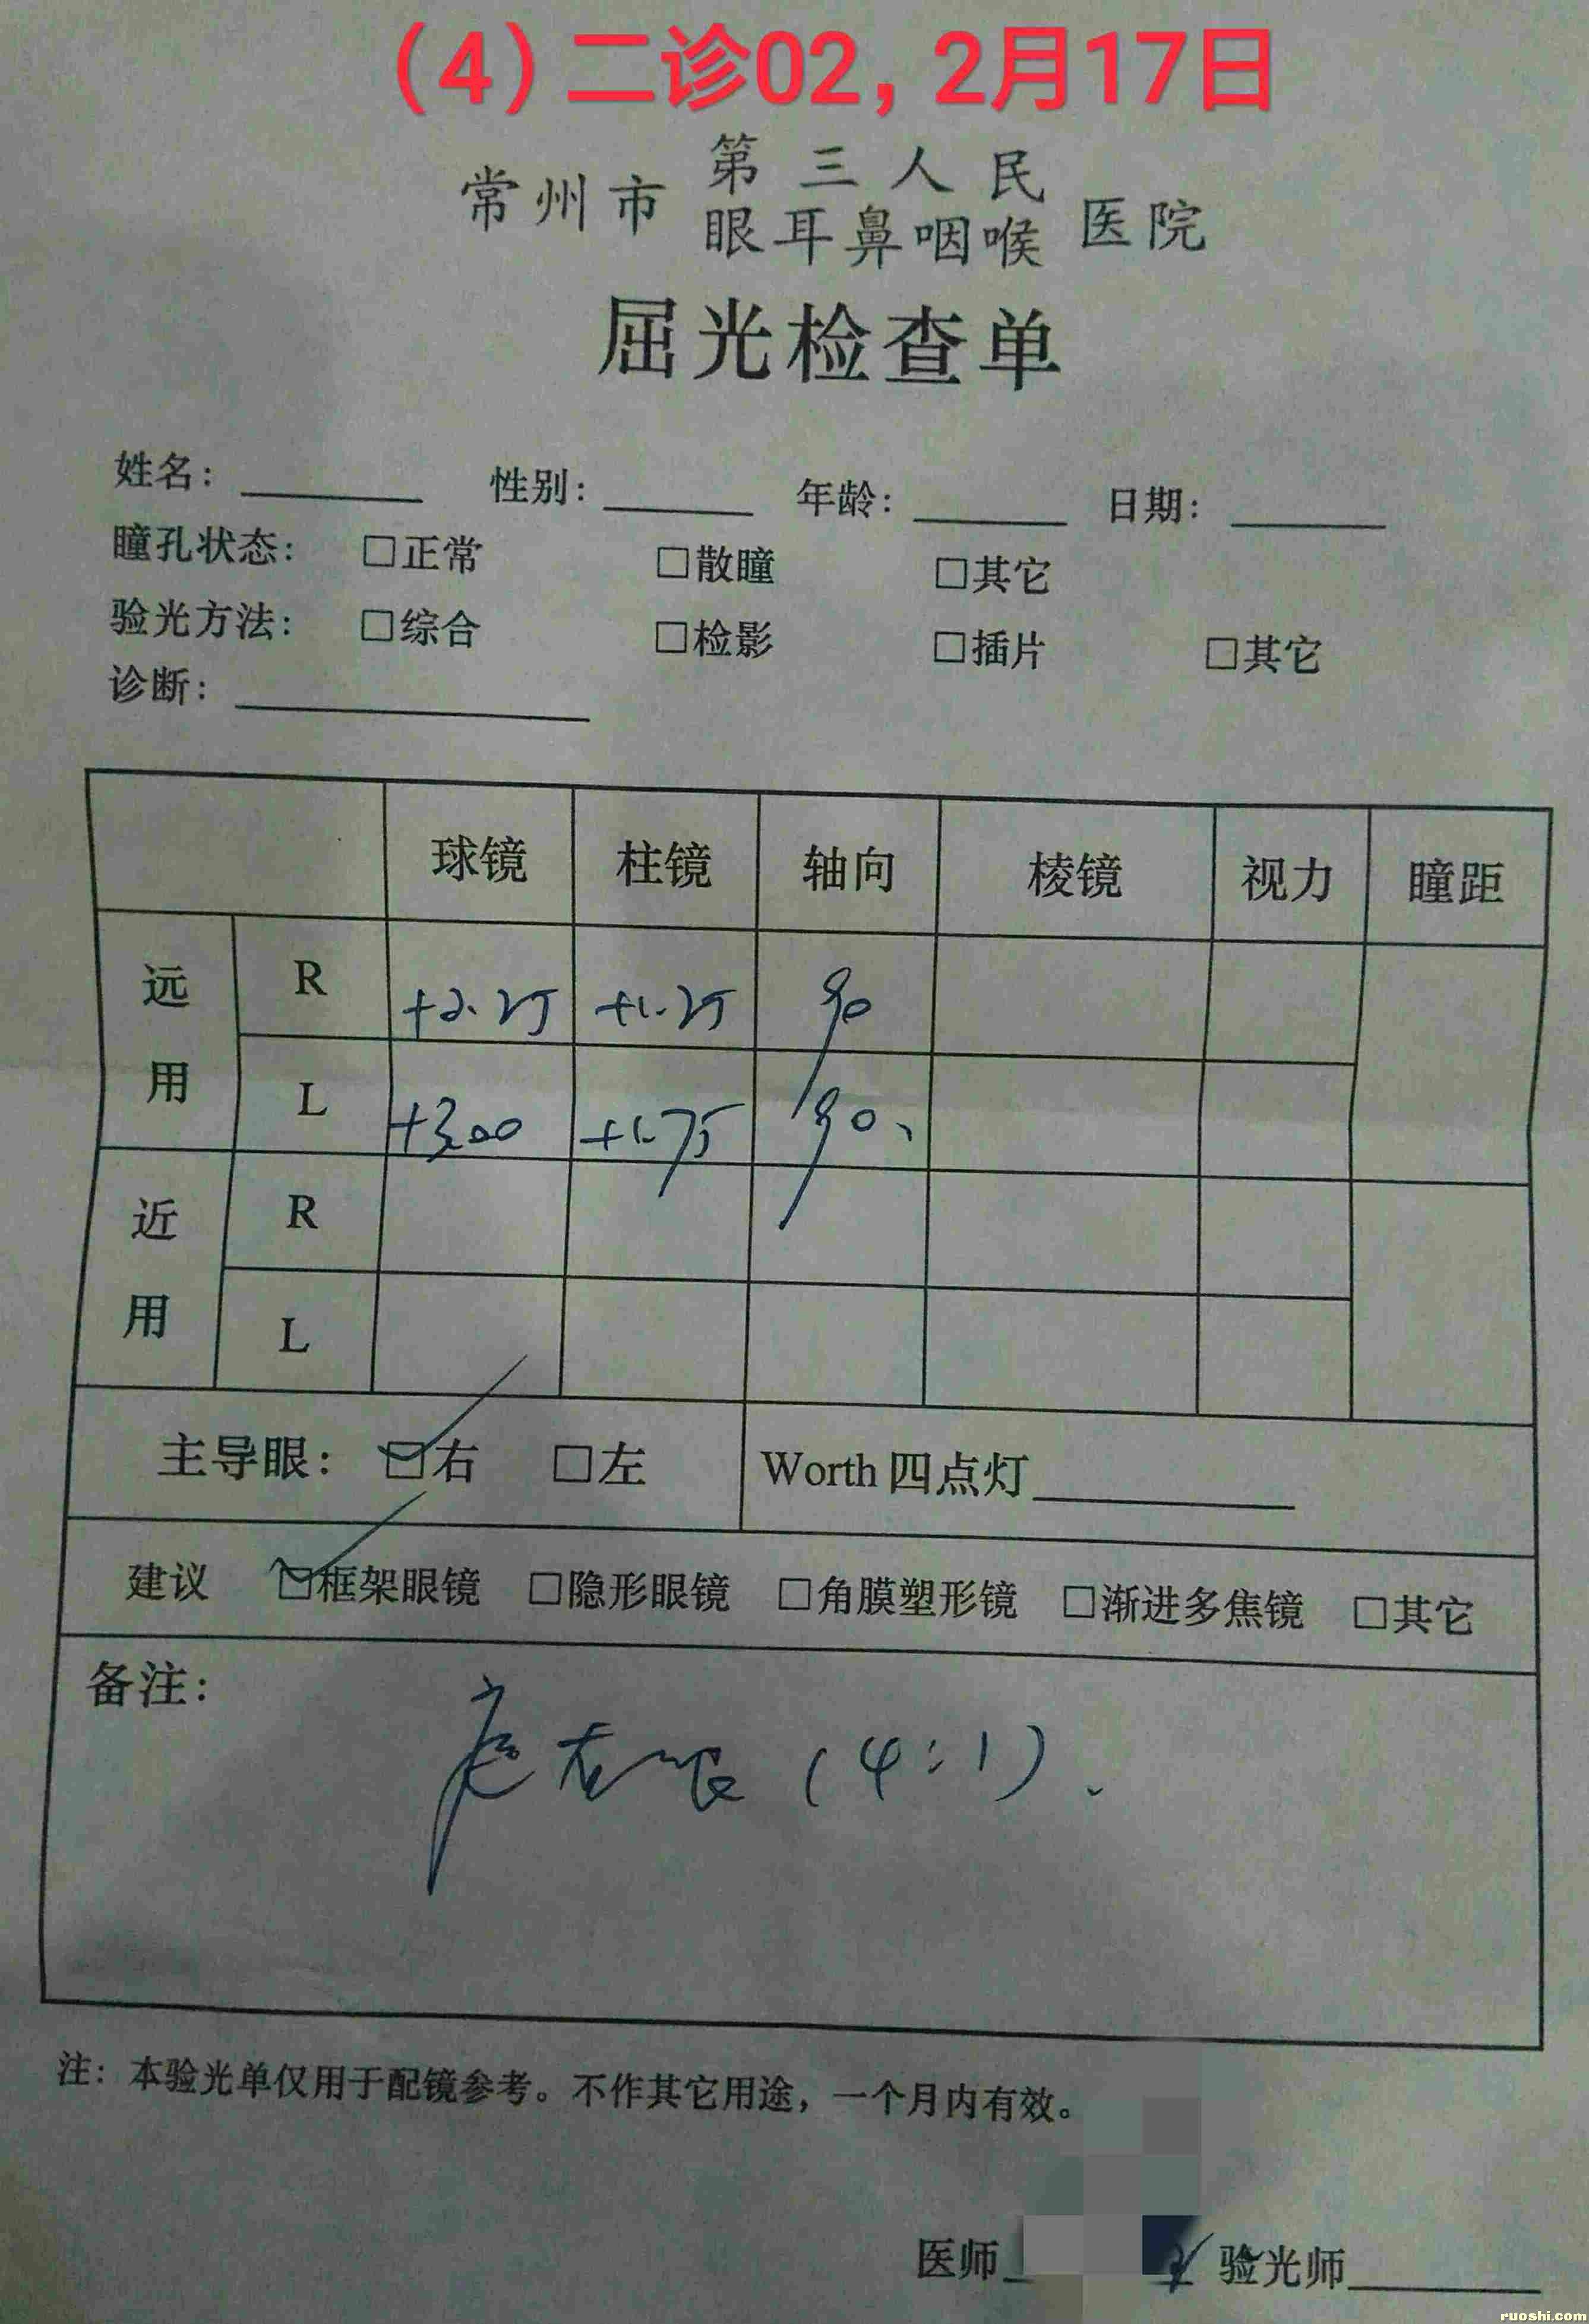 (4)二诊02,2月17日
常州市 第三人民 医院
眼耳鼻咽喉
屈光检查单
姓名: 性别: 年龄: 日期:
瞳孔状态: □正常 □散瞳 □其它
验光方法: □综合 □检影 □插片 □其它
诊断:
球镜 柱镜 轴向 棱镜 视力 瞳距
远用 R +2.25 +1.25 90
L +3.00 +1.75 90
近用 R
L
主导眼: ☑右 □左 Worth四点灯
建议 ☑框架眼镜 □隐形眼镜 □角膜塑形镜 □渐进多焦镜 □其它
备注:
眼(4:1).
注:本验光单仅用于配镜参考。不作其它用途,一个月内有效。
医师 验光师
ruoshi.com